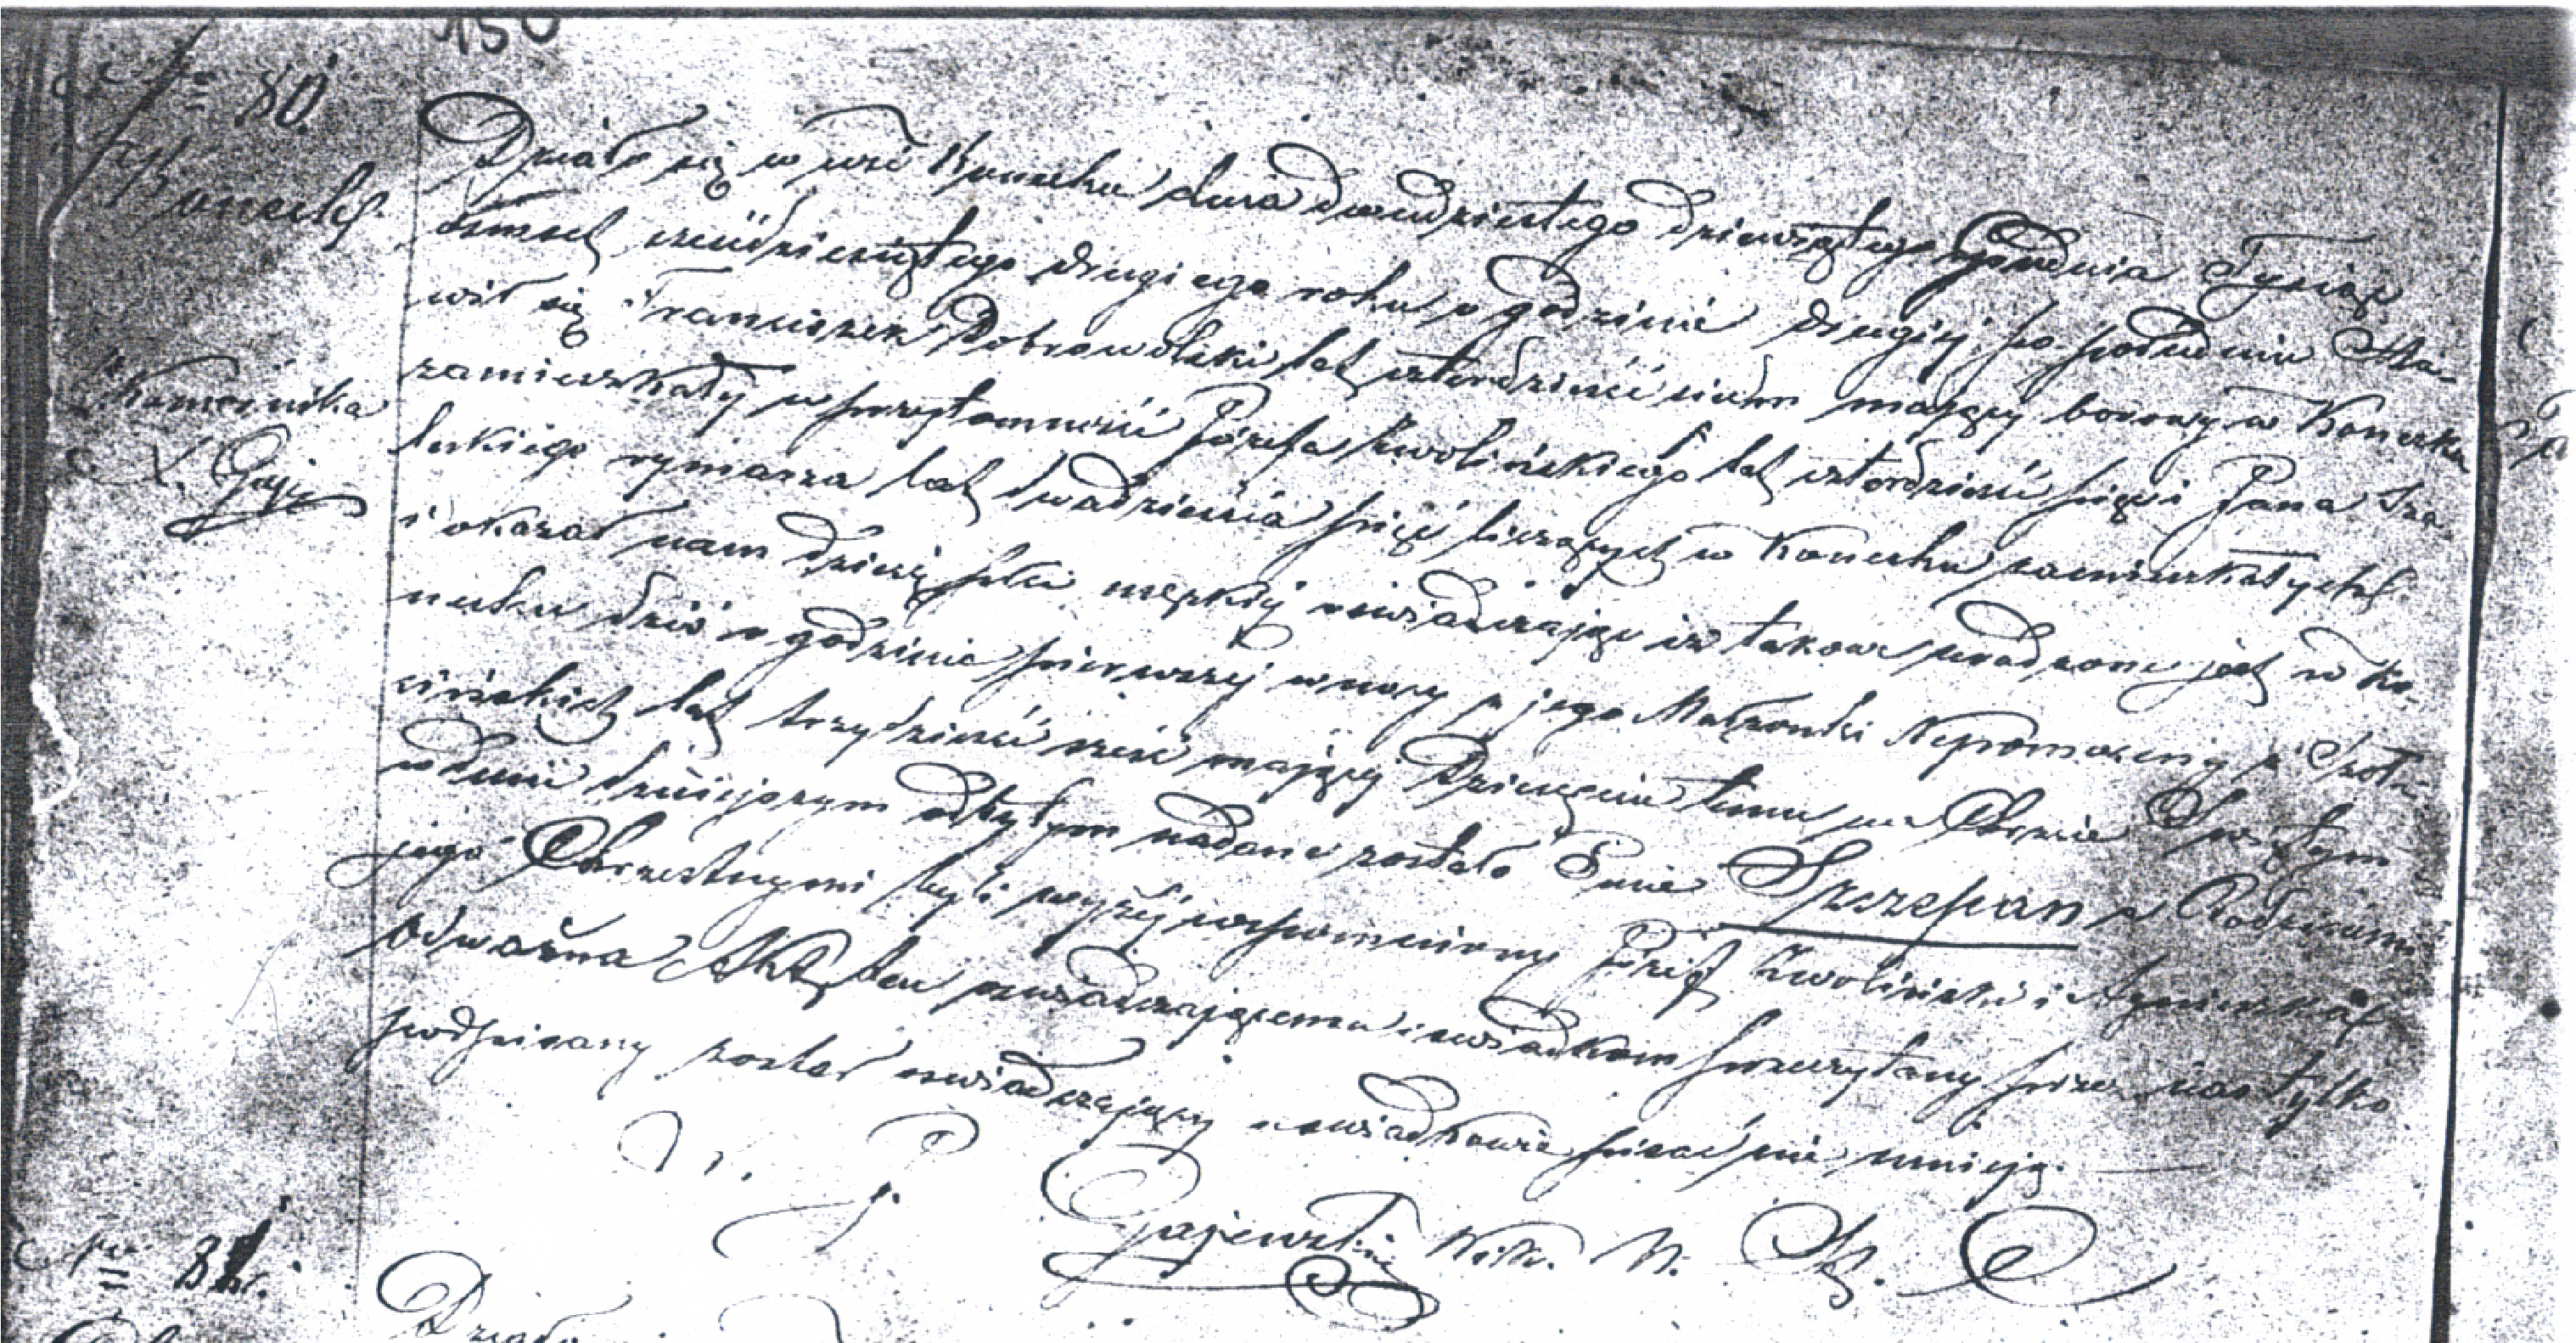 150
№ 80.
Koneck
Komornika
X. Gaje
Działo się w wsi Konecku dnia dwudziestego dziewiątego Grudnia Tysiąc
ośmset trzydziestego drugiego roku o godzinie drugiej po południu Sta-
wił się Franciszek Dobrowolski lat czterdzieści siedm mający borowy w Konecku
zamieszkały w przytomności Józefa Zwolińskiego lat czterdzieści pięć i Jana
luckiego rymarza lat dwadzieścia pięć liczących w Konecku zamieszkałych
i okazał nam dziecię płci męzkiej oswiadczając iż takowe urodzone jest w Ko-
necku dziś o godzinie pierwszej w nocy z jego Małżonki Nepomuceny z
cińskich lat trzydzieści sześć mającej Dziecięciu temu na Chrzcie Świętym
w dniu dzisiejszym odbytym nadane zostało Imie Szczepan a Rodzicami
jego Chrzestnymi byli wyżej wspomniony Józef Zwoliński i Agnieszka
Odważna Akt ten oswiadczającemu i swiadkom przeczytany przez nas tylko
podpisany został oswiadczający i swiadkowie pisać nie umieją.
Gajewski
№ 81.
Działo